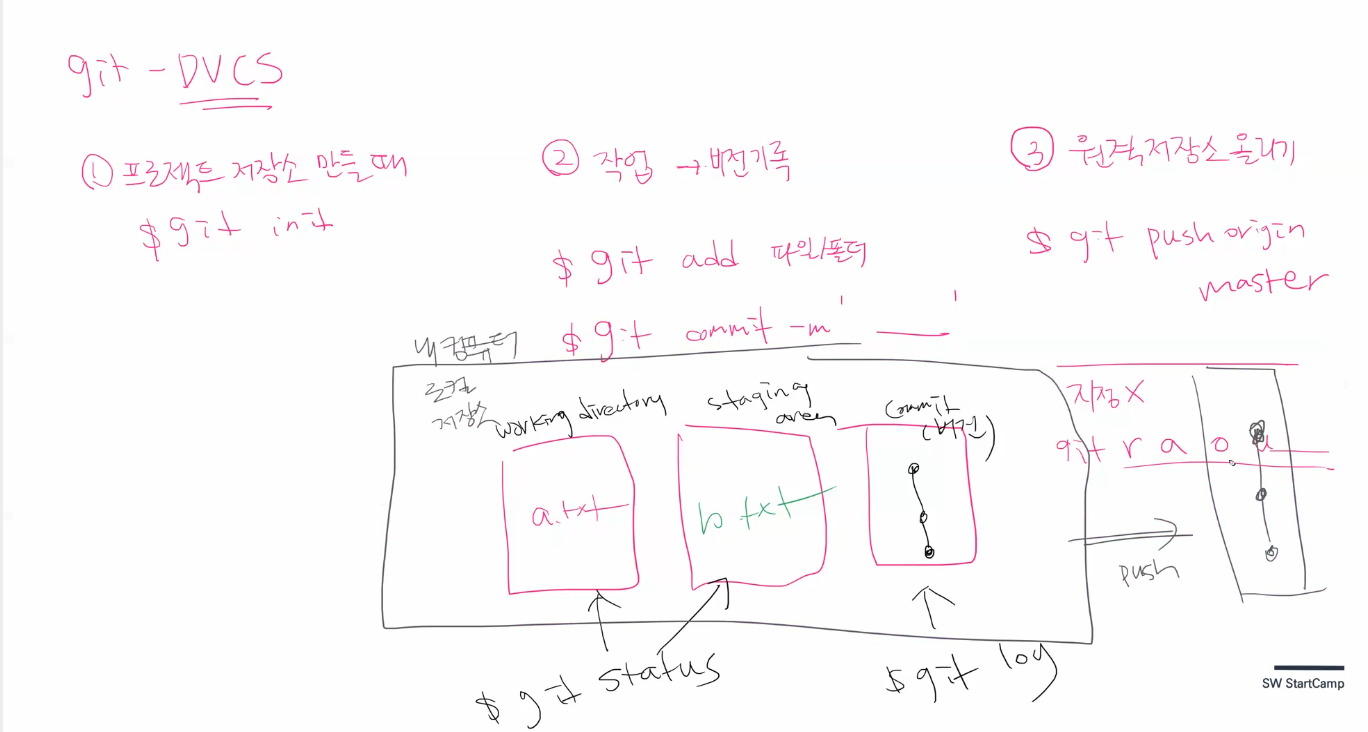 git - DVCS
① 프로젝트 저장소 만들때
$ git init
② 작업 → 버전기록
$ git add 파일/폴더
$ git commit -m ' '
③ 원격저장소 올리기
$ git push origin
master
내 컴퓨터
로컬
저장소
working directory
staging
area
commit
(버전)
a.txt
b.txt
지정X
git r a o u
push
$ git status
$ git log
SW StartCamp